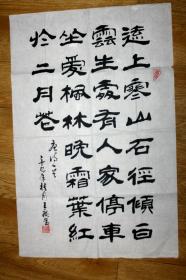 遠上寒山石徑傾白
雲生處有人家停車
坐愛楓林晚霜葉紅
於二月花
唐诗一首
辛巳年